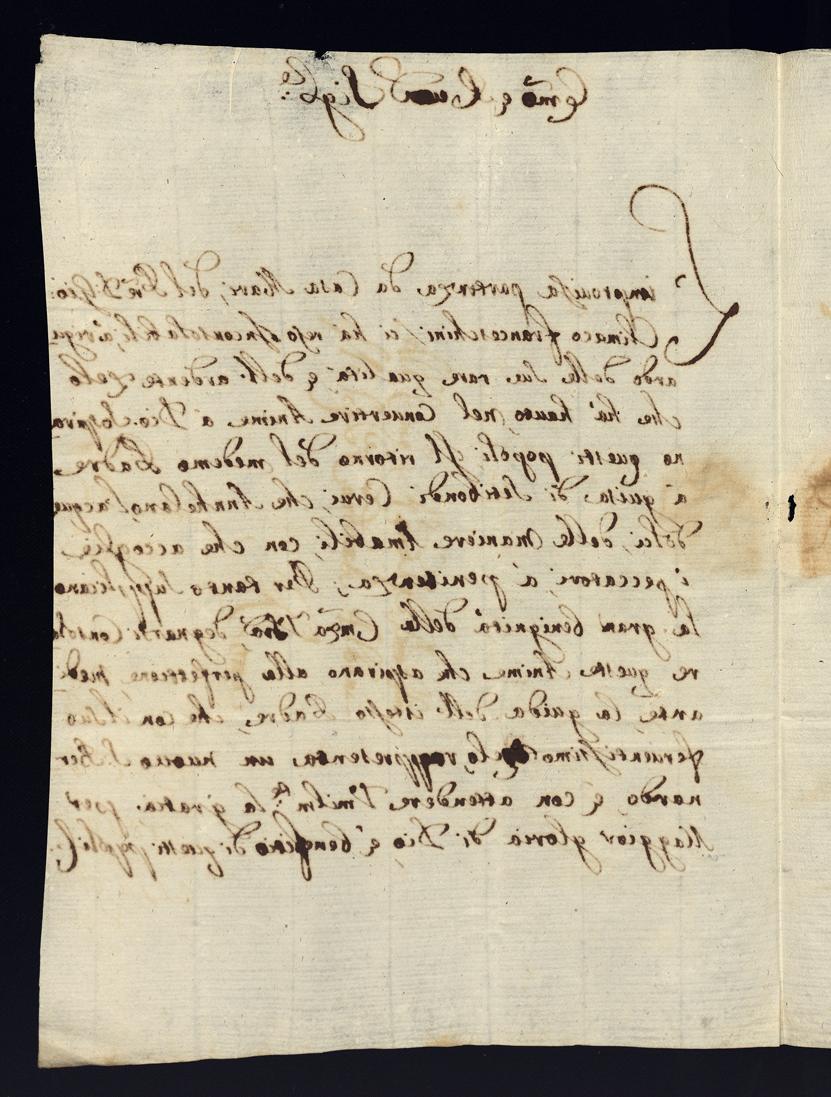 Em̃o e Reu:
L'improuisa partenza da Casa Mari, del Pr̃e D. Gio:
Climaco franceschini, ci ha reso Inconsolabili, à rigu
ardo delle sue rare qualità e dell'ardente zelo
che hà hauto nel Conuertire Anime à Dio. Sospira
no questi popoli Il ritorno del medemo Padre
à guisa di Sitibondi Cerui, che Annhelano l'acque
dolci, delle Maniere Amabili, con che accoglie
i peccatori à penitenza; Per tanto Supplicano
la gran benignità della Em̃za Vrã, degnarsi Consola
re queste Anime che aspirano alla perfezione, medi
ante la guida dell'istesso Padre, che con il suo
feruentissimo zelo, rappresenta un nuouo S. Ber
nardo, e con attendere Vmilm.te la gratia per
Maggior gloria di Dio, e benefitio di questi popoli